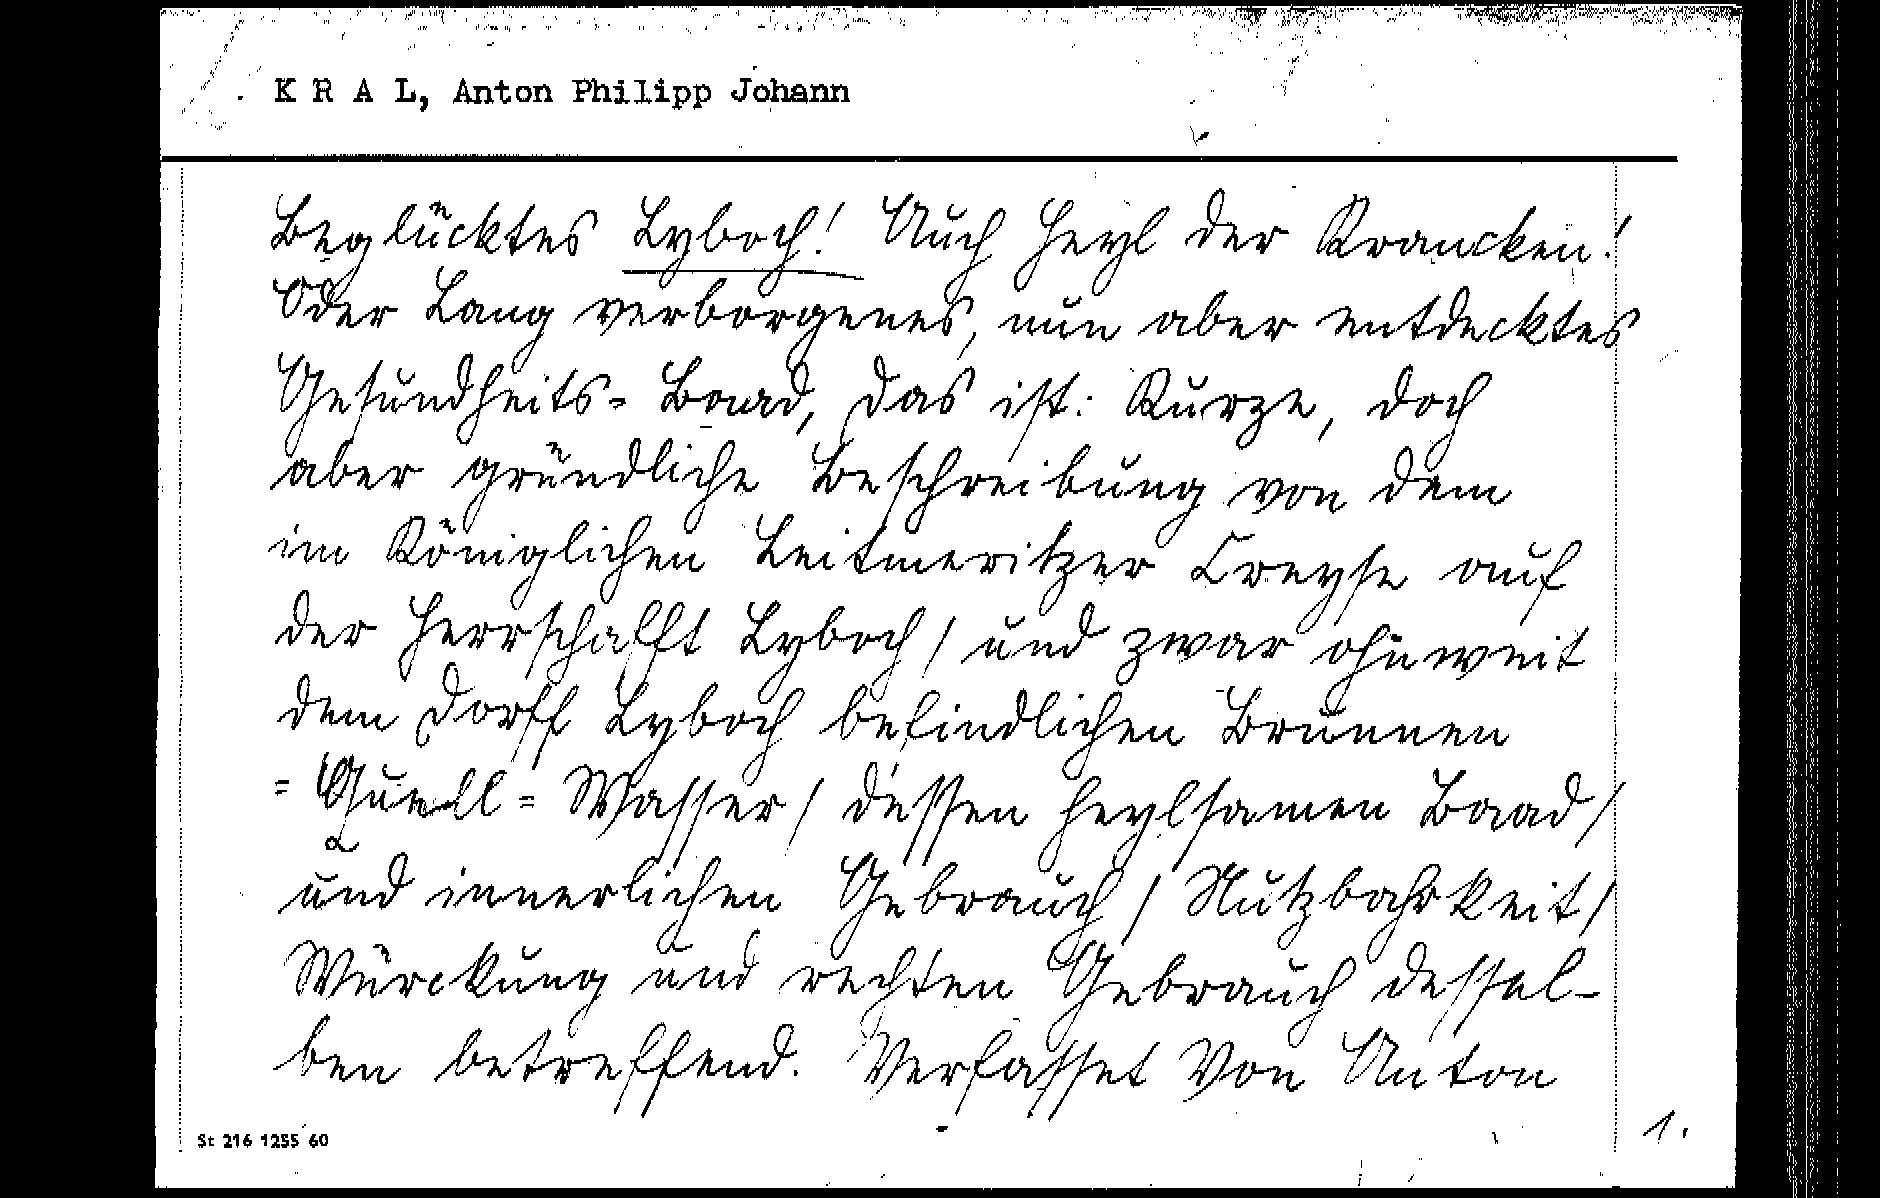 K R A L, Anton Philipp Johann
Beglücktes Lyboch! Auch Heyl der Krancken!
Oder Lang verborgenes, nun aber entdecktes
Gesundheits= Baad, das ist: Kurze, doch
aber gründliche Beschreibung von dem
im Königlichen Leitmeritzer Creyse auf
der Herrschafft Lyboch / und zwar ohnweit
dem Dorff Lyboch befindlichen Brunnen
= Quell = Wasser / dessen heylsamen Baad /
und innerlichen Gebrauch / Nutzbahrkeit /
Würckung und rechten Gebrauch dessel-
ben betreffend. Verfasset Von Anton
St 216 1255 60
1.